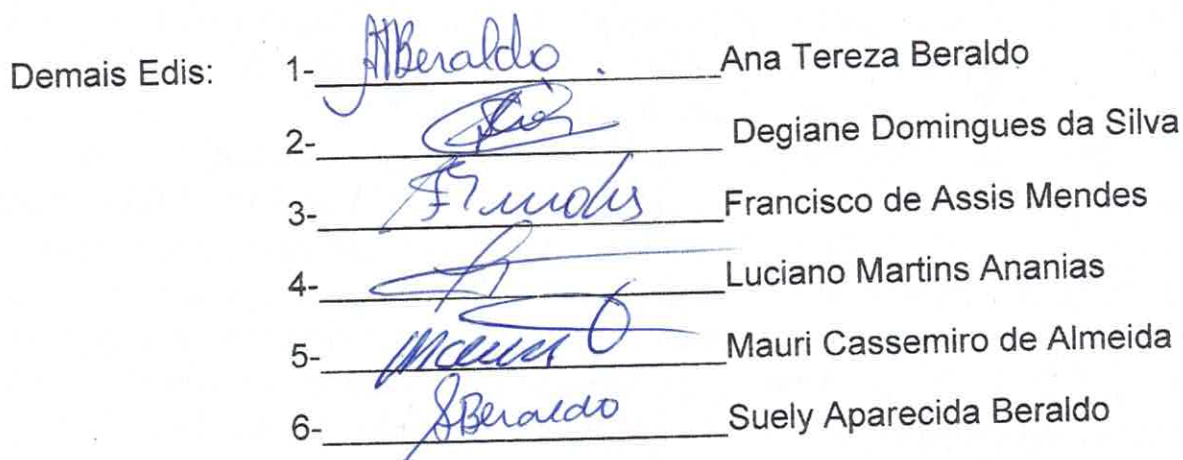 Demais Edis: 1- ATBeraldo. Ana Tereza Beraldo
2- Degiane Domingues da Silva
3- Francisco de Assis Mendes
4- Luciano Martins Ananias
5- Mauri Cassemiro de Almeida
6- SBeraldo Suely Aparecida Beraldo